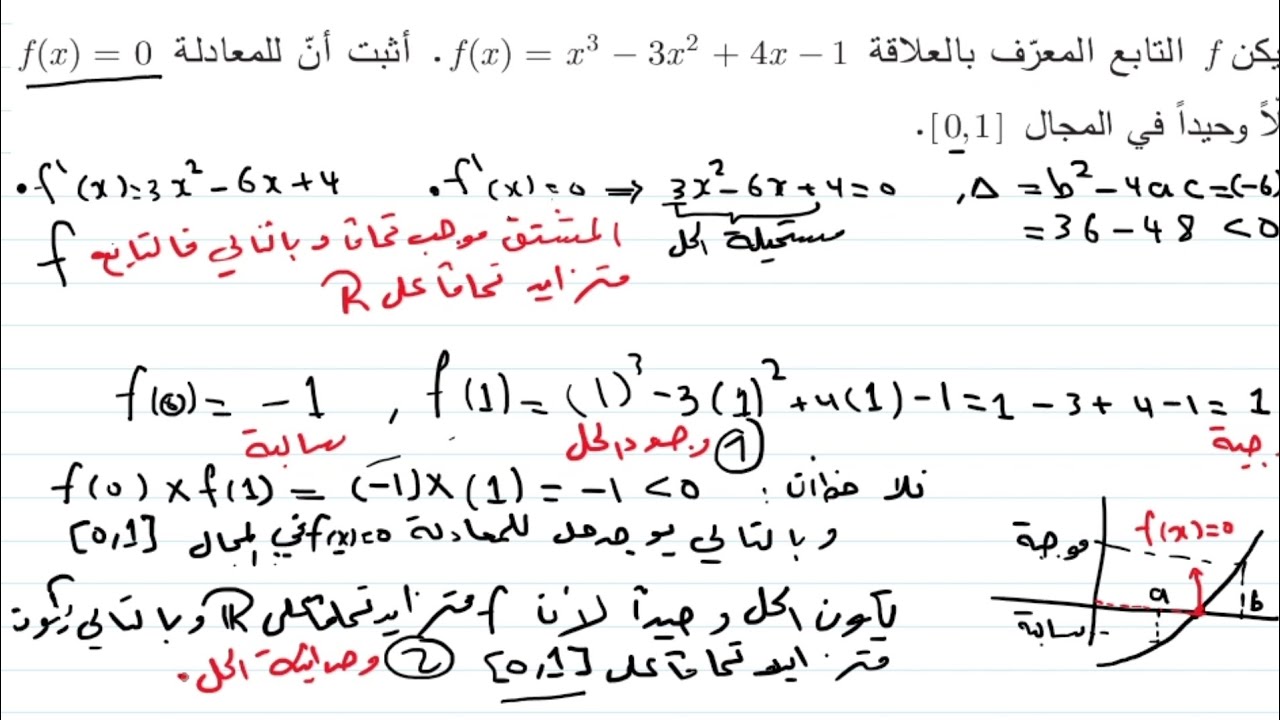 يكن f التابع المعرّف بالعلاقة f(x) = x³ − 3x² + 4x − 1 . أثبت أنّ للمعادلة f(x) = 0
لاً وحيداً في المجال [0,1] .
• f'(x)=3x²−6x+4 • f'(x)=0 ⟹ 3x²−6x+4=0 , Δ = b²−4ac=(−6)
مستحيلة الحل = 36 − 48 < 0
المشتق موجب تماماً وبالتالي فالتابع f
متزايد تماماً على R
f(0) = −1 , f(1) = (1)³ −3(1)² +4(1) −1 = 1 −3+ 4 −1 = 1
سالبة ① وجود الحل جبة
نلاحظ أن : f(0) × f(1) = (−1)×(1) = −1 < 0
وبالتالي يوجد حل للمعادلة f(x)=0 في المجال [0,1]
موجبة f(x)=0
a b
سالبة
يكون الحل وحيداً لأن f متزايد تماماً على R وبالتالي يكون
متزايد تماماً على [0,1] ② وحدانية الحل .